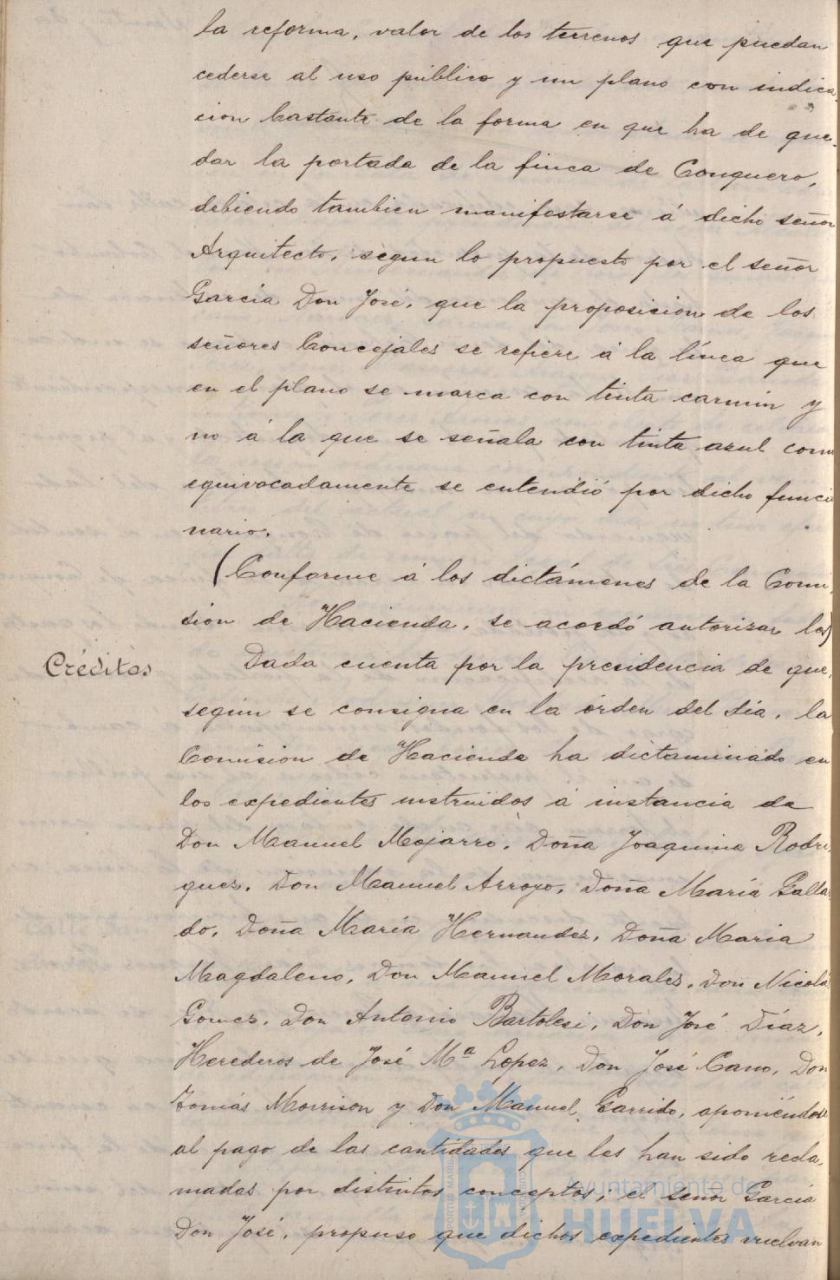 la reforma, valor de los terrenos que puedan
cederse al uso público y un plano con indica
cion bastante de la forma en que ha de que-
dar la portada de la finca de Conquero,
debiendo tambien manifestarse á dicho señor
Arquitecto, segun lo propuesto por el señor
García Don José, que la proposicion de los
señores Concejales se refiere á la línea que
en el plano se marca con tinta carmin y
no á la que se señala con tinta azul como
equivocadamente se entendió por dicho funcio
nario.
(Conforme á los dictámenes de la Comi
sión de Hacienda, se acordó autorizar los)
Créditos
Dada cuenta por la presidencia de que,
según se consigna en la orden del día, la
Comision de Hacienda ha dictaminado en
los expedientes instruidos á instancia de
Don Manuel Mojarro, Doña Joaquina Rodri
guez, Don Manuel Arroyo, Doña María Galla
do, Doña María Hernandez, Doña Maria
Magdaleno, Don Manuel Morales, Don Nicolás
Gomez, Don Antonio Bartolesi, Don José Díaz,
Herederos de José Mª Lopez, Don José Cano, Don
Tomás Morrison y Don Manuel Garrido, oponiéndose
al pago de las cantidades que les han sido recla-
madas por distintos conceptos, el señor García
Don José, propuso que dichos expedientes vuelvan
Ayuntamiento de
HUELVA